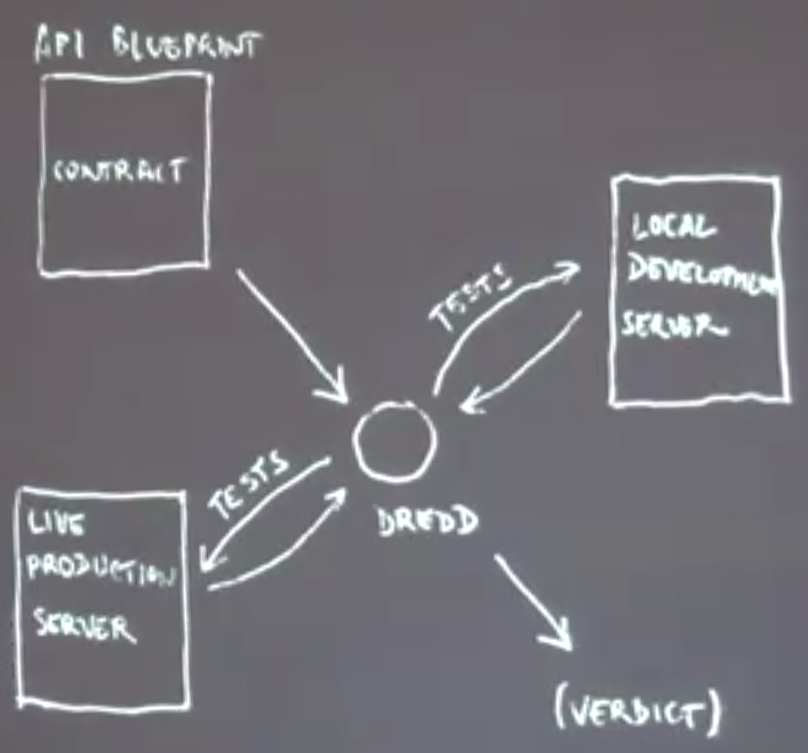 API BLUEPRINT
CONTRACT
LOCAL
DEVELOPMENT
SERVER
TESTS
TESTS
DREDD
LIVE
PRODUCTION
SERVER
(VERDICT)